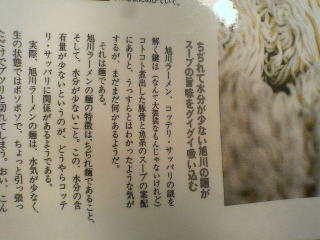 ちぢれて水分が少ない旭川の麺が
スープの旨味をグイグイ吸い込む
旭川ラーメン、コッテリ・サッパリの謎を
解く鍵は(なんて大袈裟なもんじゃないけれど)
コトコト煮出した豚骨と魚系のスープの案配
にありと、うっすらとはわかったような気が
するが、まだまだ何かあるようだ。
それは麺である。
旭川ラーメンの麺の特徴は、ちぢれ麺であること、
そして、水分が少ないこと。この、水分の含
有量が少ないというのが、どうやらコッテ
リ・サッパリに関係があるようである。
実際、旭川ラーメンの麺は、水気が少なく、
生の状態ではボソボソで、ちょっと引っ張っ
ただけでプツリと切れてしまう。おい、こん